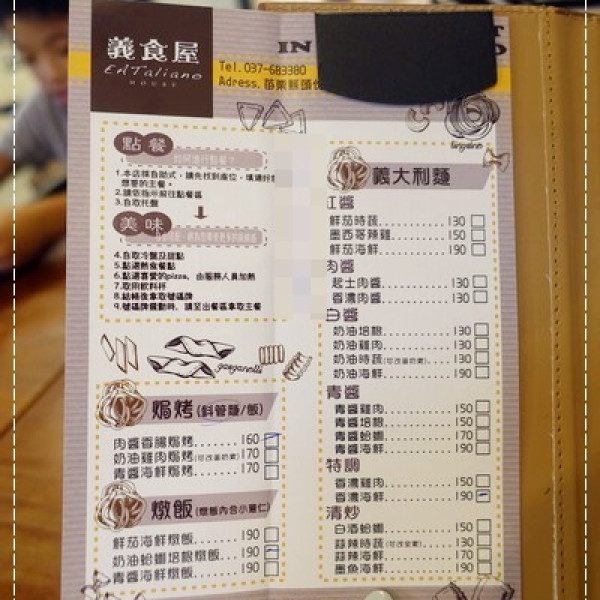 義食屋
EATaliano
HOUSE
IN
Tel.037-683380
Adress.苗栗縣頭份
點餐
如何進行點餐？
1.本店採自助式，請先找到座位，填選好您
想要的主餐。
2.請依指示前往點餐區
3.自取托盤
美味
4.自取冷盤及甜點
5.點選熱食餐點
6.點選喜愛的pizza，由服務人員加熱
7.取用飲料杯
8.結帳後拿取號碼牌
9.號碼牌震動時，請至出餐區拿取主餐
ganganelli
焗烤(斜管麵/飯)
肉醬香腸焗烤......160
奶油雞肉焗烤(可改蛋奶素)170
青醬海鮮焗烤......170
燉飯(燉飯內含小薏仁)
鮮茄海鮮燉飯......190
奶油蛤蠣培根燉飯..190
青醬海鮮燉飯......190
義大利麵
紅醬
鮮茄時蔬.........130
墨西哥辣雞.......150
鮮茄海鮮.........190
肉醬
起士肉醬.........130
香濃肉醬.........130
白醬
奶油培根.........130
奶油雞肉.........130
奶油時蔬(可改蛋奶素)...130
奶油海鮮.........190
青醬
青醬雞肉.........150
青醬培根.........150
青醬蛤蠣.........170
青醬海鮮.........190
特調
香濃雞肉.........150
香濃海鮮.........190
清炒
白酒蛤蠣.........150
蒜辣時蔬(可改全素)...130
蒜辣海鮮.........170
墨魚海鮮.........190